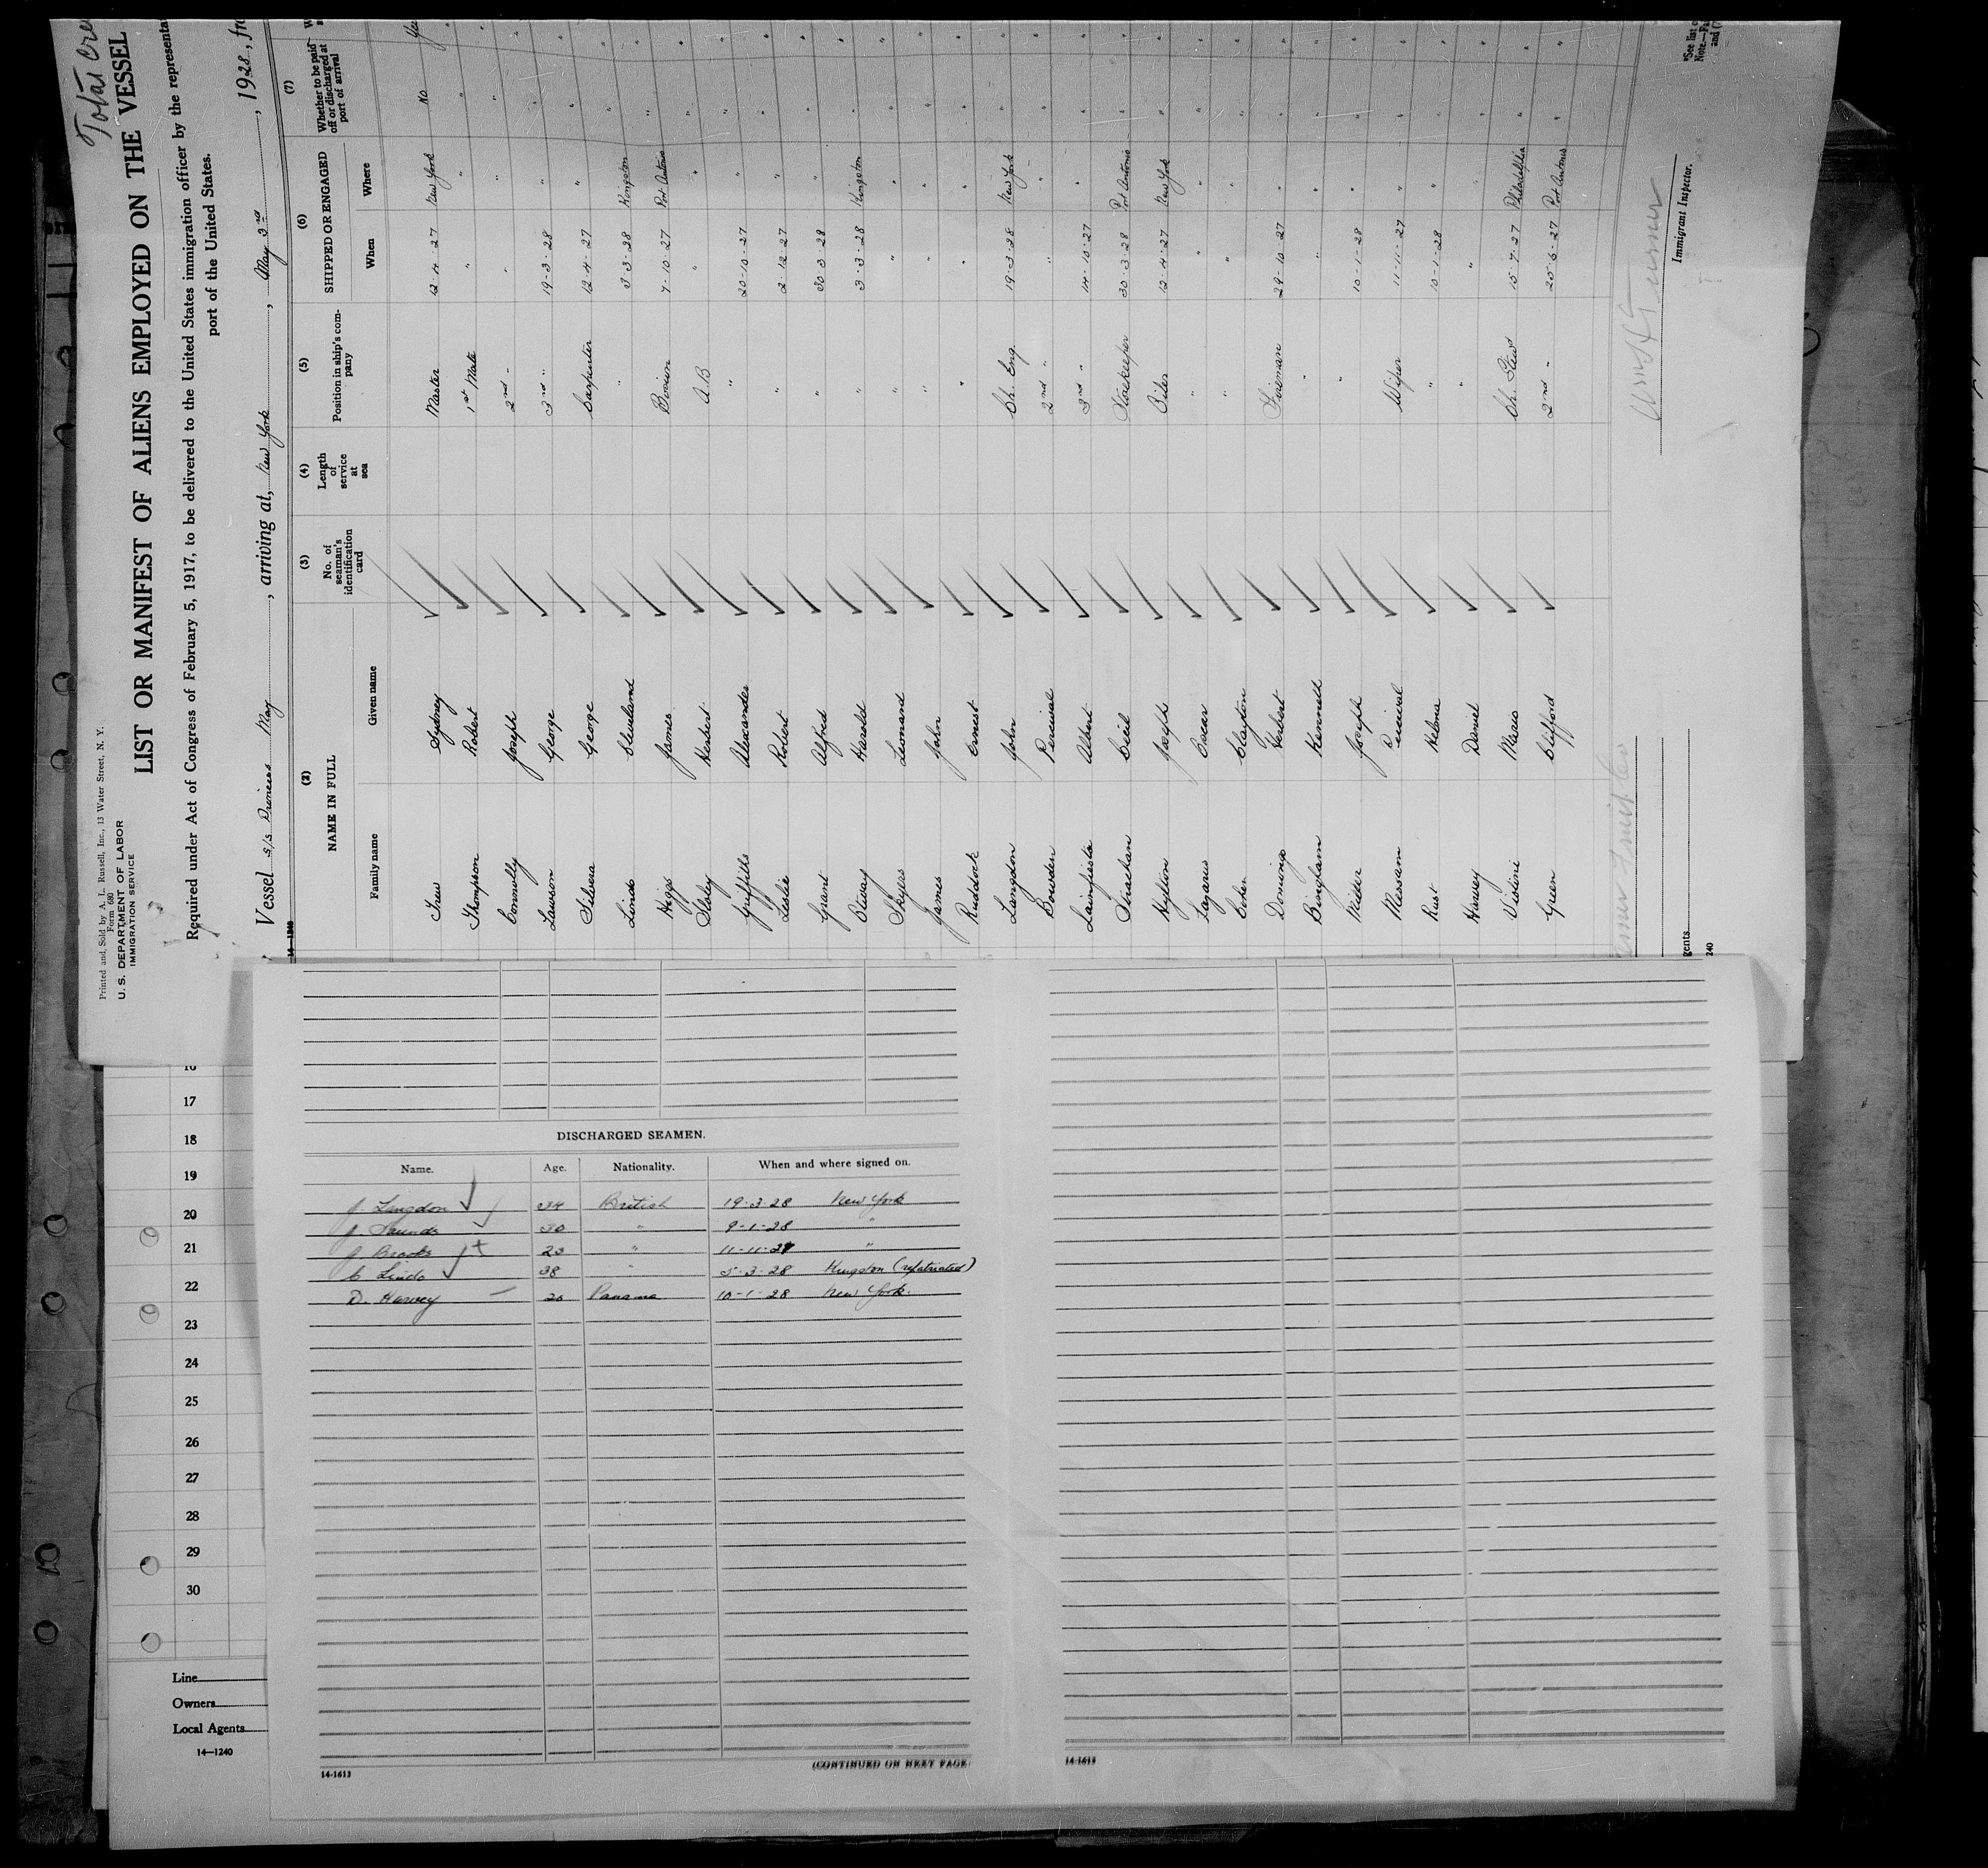 Total Cre
Printed and Sold by A. L. Russell, Inc., 13 Water Street, N. Y.
Form 680
U. S. DEPARTMENT OF LABOR
IMMIGRATION SERVICE
LIST OR MANIFEST OF ALIENS EMPLOYED ON THE VESSEL
Required under Act of Congress of February 5, 1917, to be delivered to the United States immigration officer by the representa
port of the United States.
Vessel s/s Dionicos May , arriving at, New York , May 3rd , 1928, fro
14—1240
(2) (3) (4) (5) (6) (7)
NAME IN FULL No. of seaman's identification card Length of service at sea Position in ship's company SHIPPED OR ENGAGED Whether to be paid off or discharged at port of arrival
Family name Given name When Where
Trew Sydney Master 12-4-27 New York No Yes
Thompson Robert 1st Mate " " "
Connolly Joseph 2nd " " " "
Lawson George 3rd " 19-3-28 " "
Silvera George Carpenter 12-4-27 " "
Lindo Cleveland " 3-3-28 Kingston "
Higgs James Bosun 7-10-27 Port Antonio "
Staley Herbert A.B " " "
Griffiths Alexander " 20-10-27 " "
Leslie Robert " 2-12-27 " "
Grant Alfred " 30-3-28 " "
Otway Harold " 3-3-28 Kingston "
Skyers Leonard " " " "
James John " " " "
Ruddock Ernest " " " "
Langdon John Ch. Eng. 19-3-28 New York "
Bowden Percival 2nd " " " "
Albert 3rd " 14-10-27 " "
Strachan Cecil Storekeeper 30-3-28 Port Antonio "
Hylton Joseph Oiler 12-4-27 New York "
Lazarus Oscar " " " "
Cohen Clayton " " " "
Downing Herbert Fireman 29-10-27 " "
Bingham Kenneth " " " "
Miller Joseph " 10-1-28 " "
Messam Percival Wiper 11-11-27 " "
Rust " 10-1-28 " "
Harvey Daniel " " " "
Mario Ch. Stew 15-7-27 Philadelphia "
Green Clifford 2nd " 25-6-27 Port Antonio "
Immigrant Inspector.
gents
240
*See list
Note.—Fa
and (7
17
18
19
20
21
22
23
24
25
26
27
28
29
30
Line
Owners
Local Agents
14—1240
DISCHARGED SEAMEN.
Name. Age. Nationality. When and where signed on.
J. Langdon 34 British 19-3-28 New York
J. Saunds 30 " 9-1-28 "
J. Brooks 23 " 11-11-27 "
C Lindo 38 " 5-3-28 Kingston (repatriated)
D. Harvey 20 Panama 10-1-28 New York.
14-1613
(CONTINUED ON NEXT PAGE)
14-1613